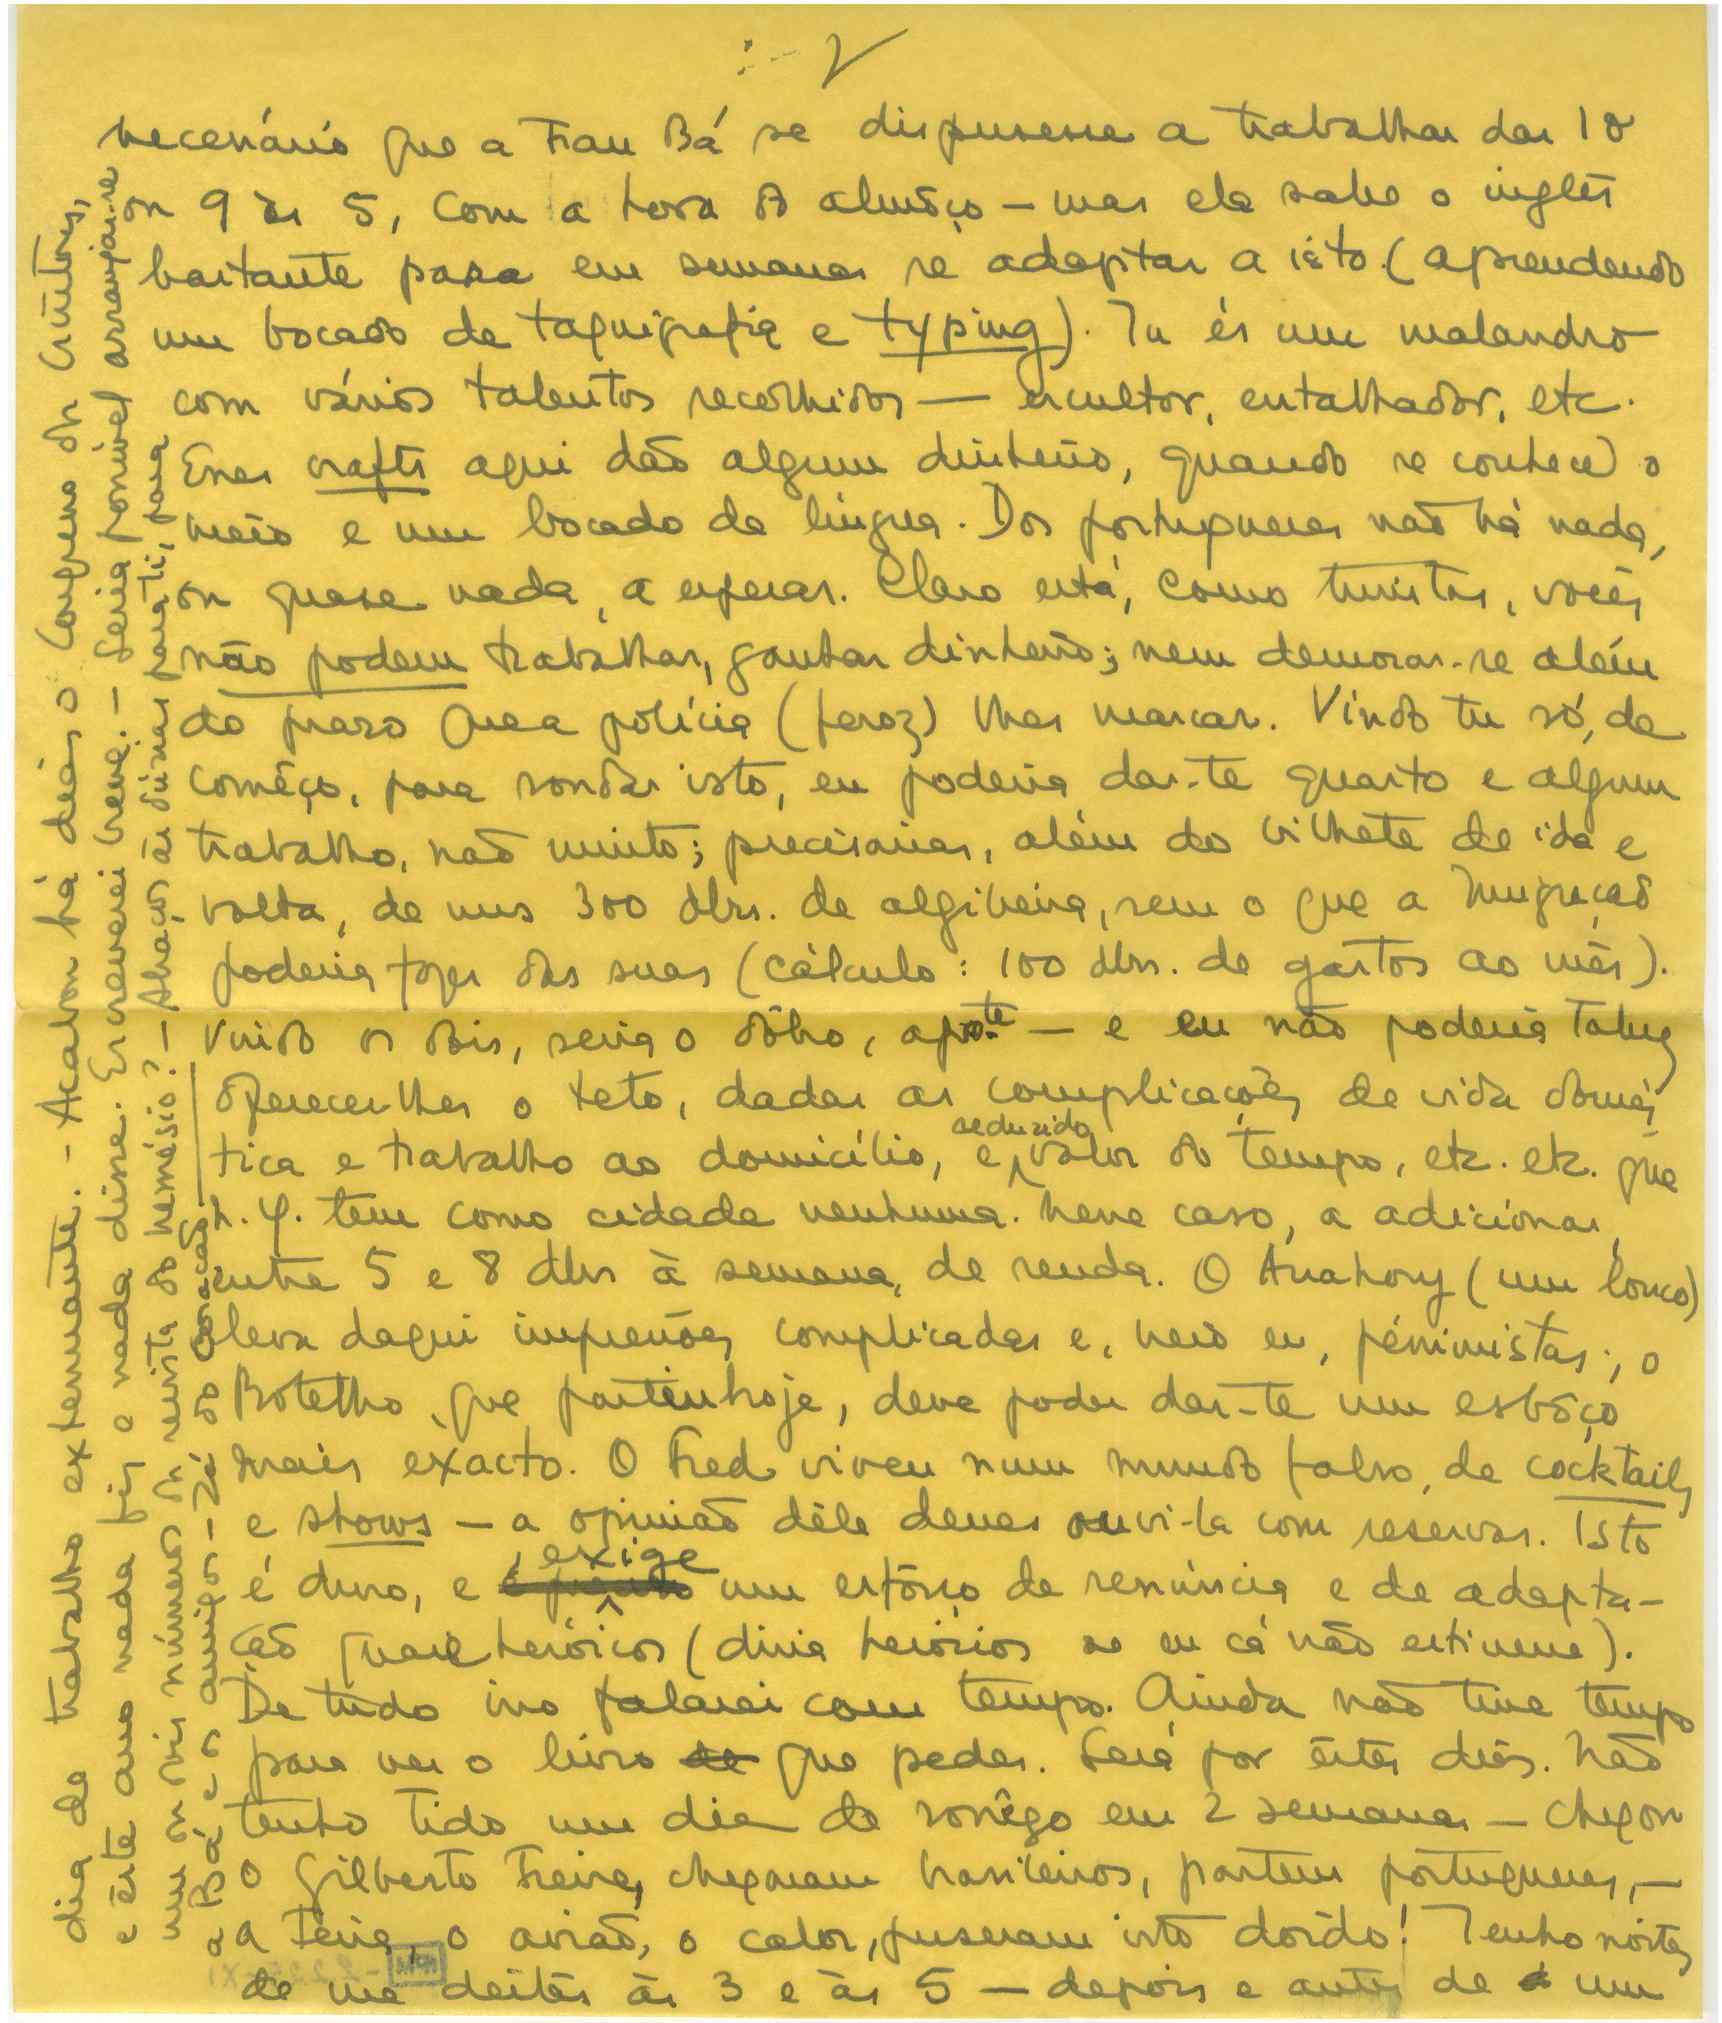 :- 2
necessário que a Frau Bá se dispusesse a trabalhar das 10
ou 9 às 5, com a hora do almôço — mas ela sabe o inglês
bastante para em semanas se adaptar a isto (aprendendo
um bocado de taquigrafia e typing). Tu és um malandro
com vários talentos recolhidos — escultor, entalhador, etc.
Esses crafts aqui dão algum dinheiro, quando se conhece o
meio e um bocado da língua. Dos portugueses não há nada,
ou quase nada, a esperar. Claro está, como turistas, vocês
não podem trabalhar, ganhar dinheiro; nem demorar-se além
do prazo que a polícia (feroz) lhes marcar. Vindo tu só, de
comêço, para sondar isto, eu poderia dar-te quarto e algum
trabalho, não muito; precisarias, além do bilhete de ida e
volta, de uns 300 dlrs. de algibeira, sem o que a Imigração
poderia fazer das suas (cálculo: 100 dlrs. de gastos ao mês).
Vindo os dois, seria o dôbro, aprox.te — e eu não poderia talvez
oferecer-lhes o teto, dadas as complicações de vida domés
tica e trabalho ao domicílio, e reduzido valor do tempo, etc. etc. que
N. Y. tem como cidade nenhuma. Nesse caso, a adicionar,
entre 5 e 8 dlrs à semana, de renda. O Anahory (um louco)
leva daqui impressões complicadas e, creio eu, péssimistas; o
Botelho, que parte hoje, deve poder dar-te um esbôço
mais exacto. O Fred viveu num mundo falso, de cocktails
e shows — a opinião dêle deves ouvi-la com reservas. Isto
é duro, e exige um esfôrço de renúncia e de adapta-
ção quase heróicos (diria heróicos se eu cá não estivesse).
De tudo isso falarei com tempo. Ainda não tive tempo
para ver o livro que pedes. Será por êstes dias. Não
tenho tido um dia de sossêgo em 2 semanas — chegou
o Gilberto Freire, chegaram brasileiros, partem portugueses, —
a Feira, o avião, o calor, puseram isto doido! Tenho noites
de me deitar às 3 e às 5 — depois e antes de um
dia de trabalho extenuante. - Acabou há dias o Congresso dos Escritores,
e êste ano nada fiz e nada disse. Escreverei breve. — Seria possível arranjar-se
um ou dois números da revista do Nemésio? — Abraços às dúzias para ti, para
a Bá e os amigos — Zé do Coração